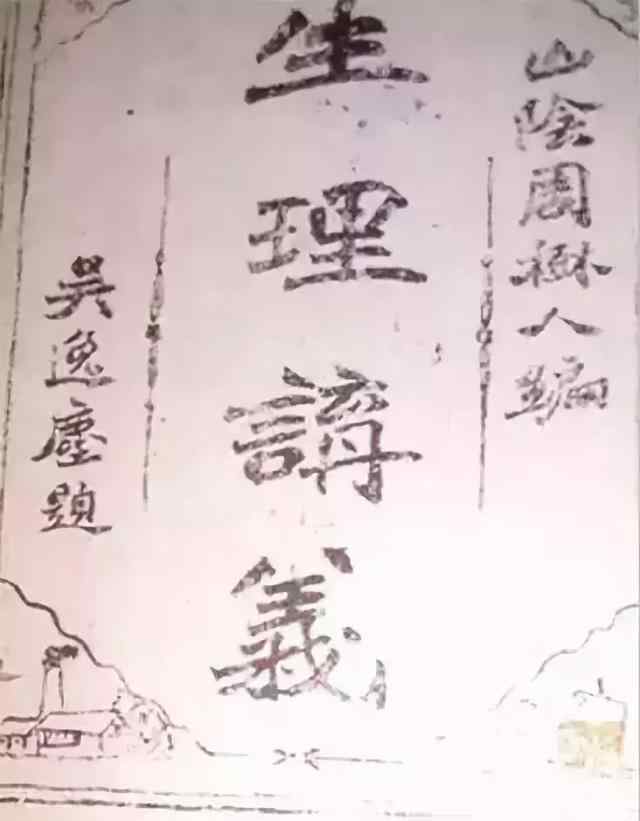 山陰周樹人編
生理講義
吳逸塵題